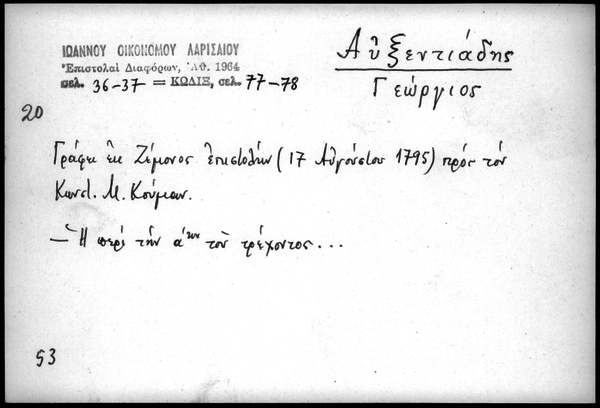 ΙΩΑΝΝΟΥ ΟΙΚΟΝΟΜΟΥ ΛΑΡΙΣΑΙΟΥ
Ἐπιστολαὶ Διαφόρων, Ἀθ. 1964
σελ. 36-37 = ΚΩΔΙΞ, σελ. 77-78
Αὐξεντιάδης
Γεώργιος
20
Γράφει ἐκ Ζέμονος ἐπιστολὴν (17 Αὐγούστου 1795) πρὸς τὸν
Κωνστ. Μ. Κούμαν.
— Ἡ περὶ τὴν α΄ην τοῦ τρέχοντος...
53